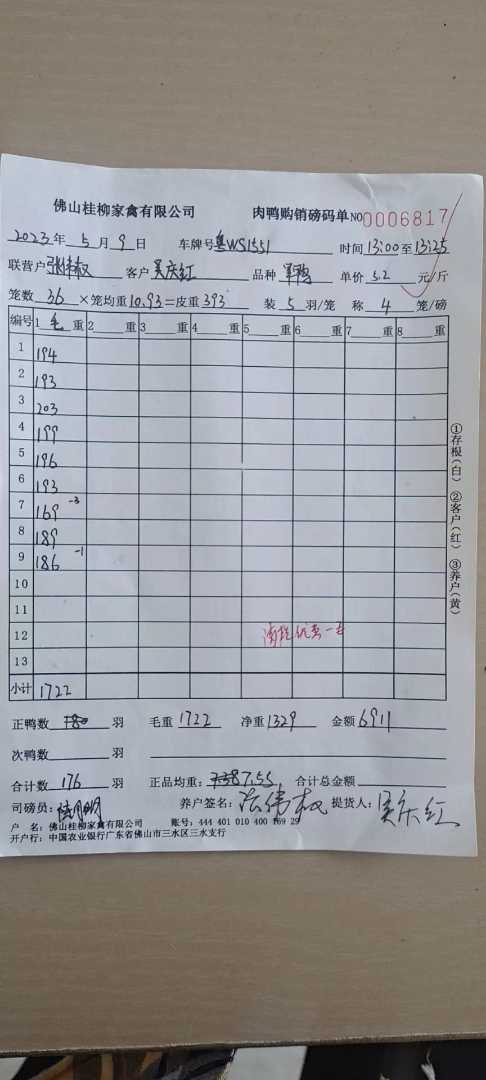 佛山桂柳家禽有限公司 肉鸭购销磅码单 NO 0006817
2023年 5 月 9 日 车牌号 粤WS1551 时间 13:00 至 13:25
联营户 客户 吴庆红 品种 单价 5.2 元/斤
笼数 36 ×笼均重 10.93 =皮重 393 装 5 羽/笼 称 4 笼/磅
编号 1 毛 重 2 重 3 重 4 重 5 重 6 重 7 重 8 重
1 194
2 193
3 203
4 199
5 196
6 193
7 169 -3
8 189
9 186 -1
10
11
12
13
小计 1722
正鸭数 180 羽 毛重 1722 净重 1329 金额 6911
次鸭数 羽
合计数 176 羽 正品均重: 7.55 合计总金额
司磅员: 养户签名: 提货人: 吴庆红
户 名: 佛山桂柳家禽有限公司 账号: 444 401 010 400 169 29
开户行: 中国农业银行广东省佛山市三水区三水支行
①存根(白) ②客户(红) ③养户(黄)